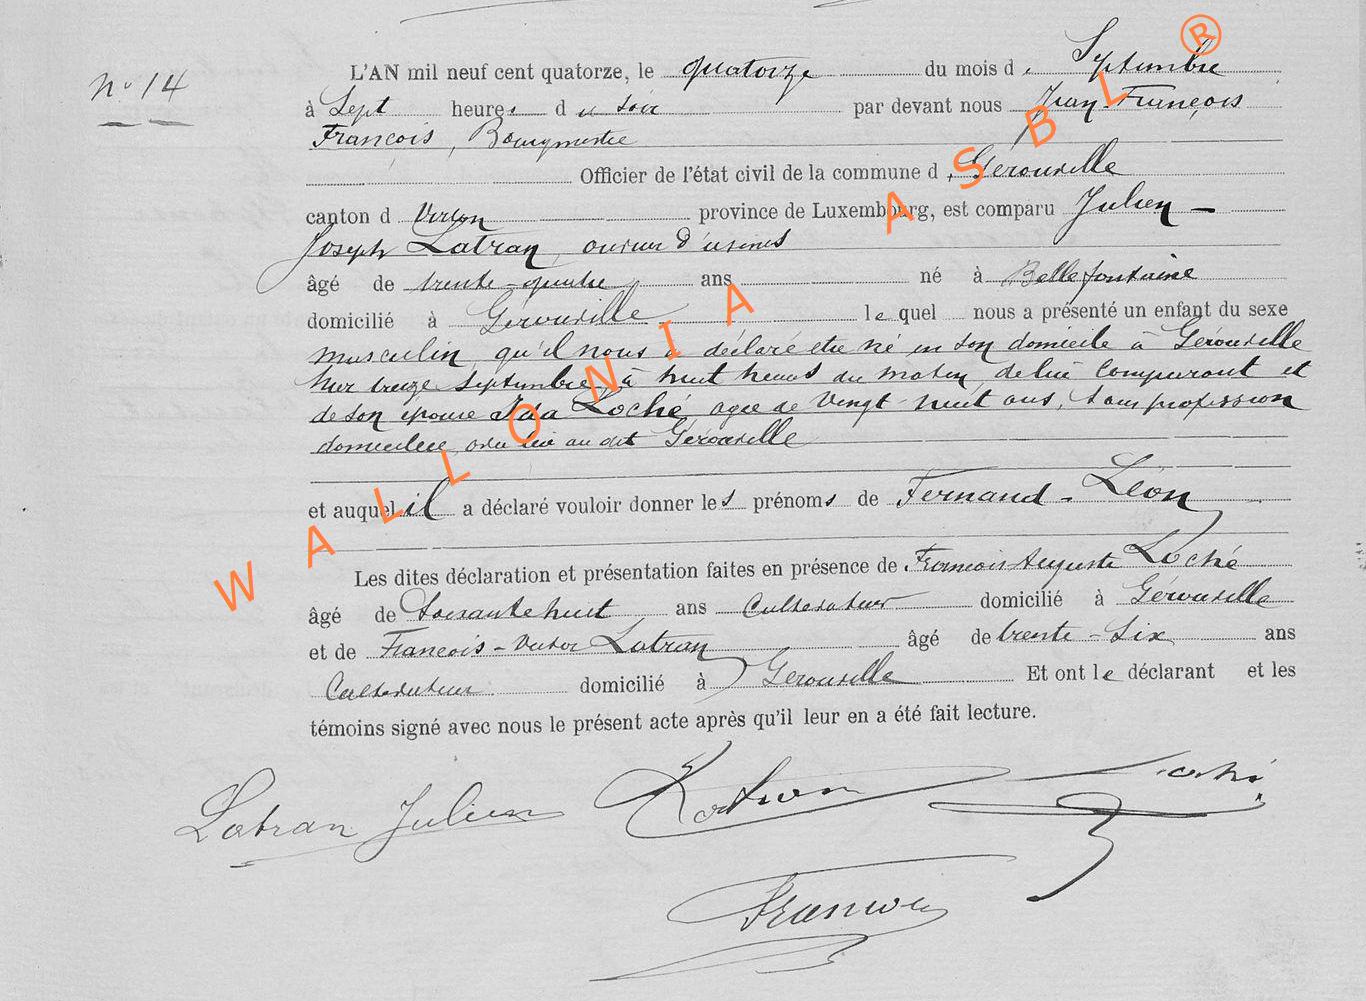 N° 14
L'AN mil neuf cent quatorze, le quatorze du mois de Septembre
à Sept heures du soir par devant nous Jean-François
François, Bourgmestre
Officier de l'état civil de la commune de Gérouville
canton de Virton province de Luxembourg, est comparu Julien-
Joseph Latran, ouvrier d'usines
âgé de trente-quatre ans né à Bellefontaine
domicilié à Gérouville lequel nous a présenté un enfant du sexe
masculin, qu'il nous a déclaré être né en son domicile à Gérouville
hier treize Septembre, à huit heures du matin, de lui comparant et
de son épouse Ida Loché, agée de Vingt-huit ans, sans profession
domiciliée avec lui au dit Gérouville
et auquel il a déclaré vouloir donner les prénoms de Fernand-Léon
Les dites déclaration et présentation faites en présence de François Auguste Loché
âgé de Soixante huit ans Cultivateur domicilié à Gérouville
et de François-Victor Latran âgé de trente-six ans
Cultivateur domicilié à Gérouville Et ont le déclarant et les
témoins signé avec nous le présent acte après qu'il leur en a été fait lecture.
Latran Julien Latran Loché
François
WALLONIA ASBL ®